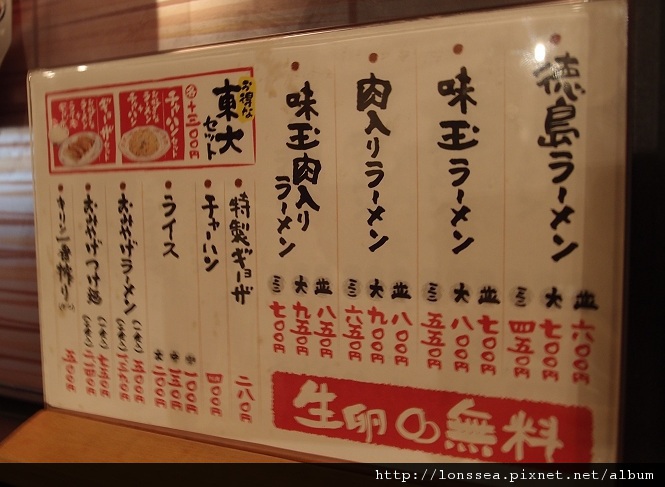 徳島ラーメン
並 六〇〇円
大 七〇〇円
ミニ 四五〇円
味玉ラーメン
並 七〇〇円
大 八〇〇円
ミニ 五五〇円
肉入りラーメン
並 八〇〇円
大 九〇〇円
ミニ 六五〇円
味玉肉入りラーメン
並 八五〇円
大 九五〇円
ミニ 七〇〇円
生卵 無料
お得な
東大セット
+三〇〇円
チャーハンセット
ギョーザセット
特製ギョーザ 二八〇円
チャーハン 四〇〇円
ライス
中 一〇〇円
大 二〇〇円
おみやげラーメン
おみやげつけ麺
キリン一番搾り
五〇〇円
http://lonssea.pixnet.net/album